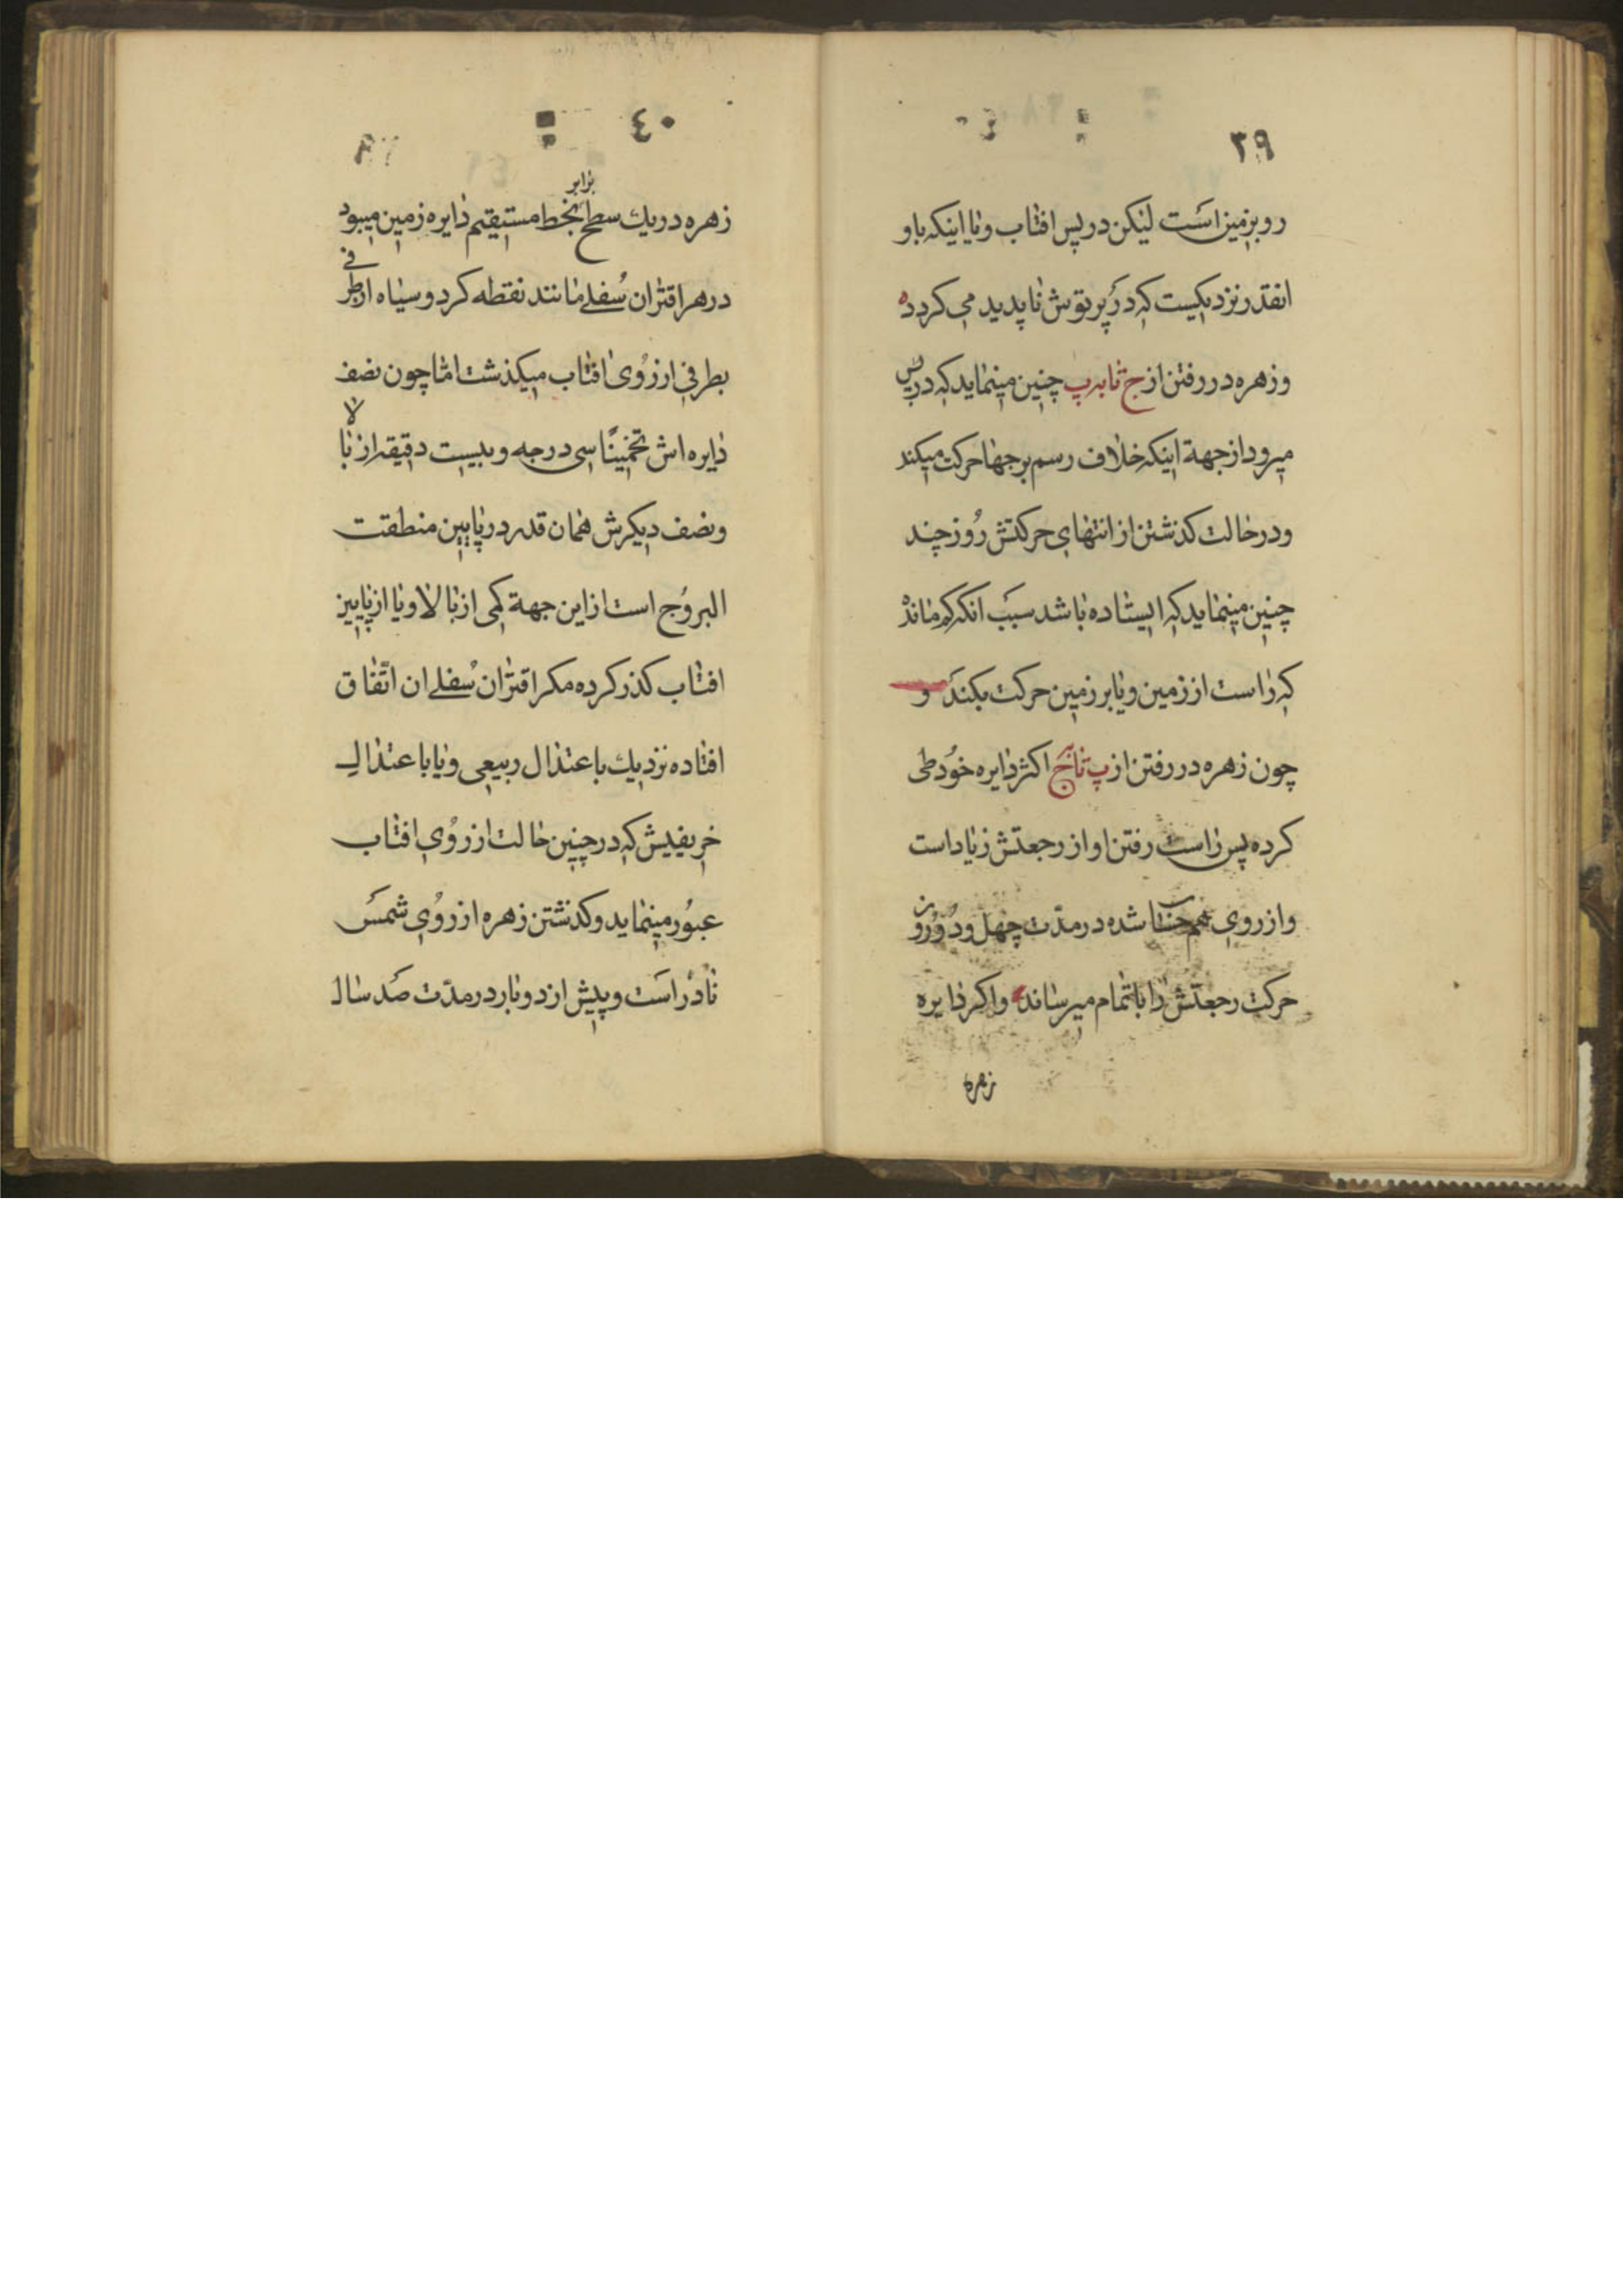 ۳۹
روبزمین است لیکن در پس افتاب و یا اینکه باو
انقدر نزدیکیست که در پرتوش ناپدید می کردد
و زهره در رفتن از ج تا به پ چنین مینماید که در پس
میرود از جهة اینکه خلاف رسم برجها حرکت میکند
و در حالت کذشتن از انتهای حرکتش روز چند
چنین مینماید که ایستاده باشد سبب انکه کم ماند
که راست از زمین و یا بر زمین حرکت بکند و
چون زهره در رفتن از پ تا به ج اکثر دایره خود طی
کرده پس راست رفتن او از رجعتش زیاد است
و از روی هم حساب شده در مدّت چهل و دو روز
حرکت رجعتش را باتمام میرساند واکر دایره
زهره
۴۰
زهره در یك سطح برابر بخط مستقیم دایره زمین میبود
در هر اقتران سُفلے مانند نقطه کرد و سیاه از طرفی
بطرفی از روی افتاب میکذشت امّا چون نصف
دایره اش تخمینًا سی درجه و بیست دقیقه از بالا
و نصف دیکرش همان قدر در پایین منطقت
البروج است از این جهة کمی از بالا و یا از پایین
افتاب کذر کرده مکر اقتران سُفلے ان اتّفاق
افتاده نزدیك باعتدال ربیعی و یا باعتدال
خریفیش که در چنین حالت از روی افتاب
عبور مینماید و کذشتن زهره از روی شمس
نادر است و پیش از دو بار در مدّت صد سال